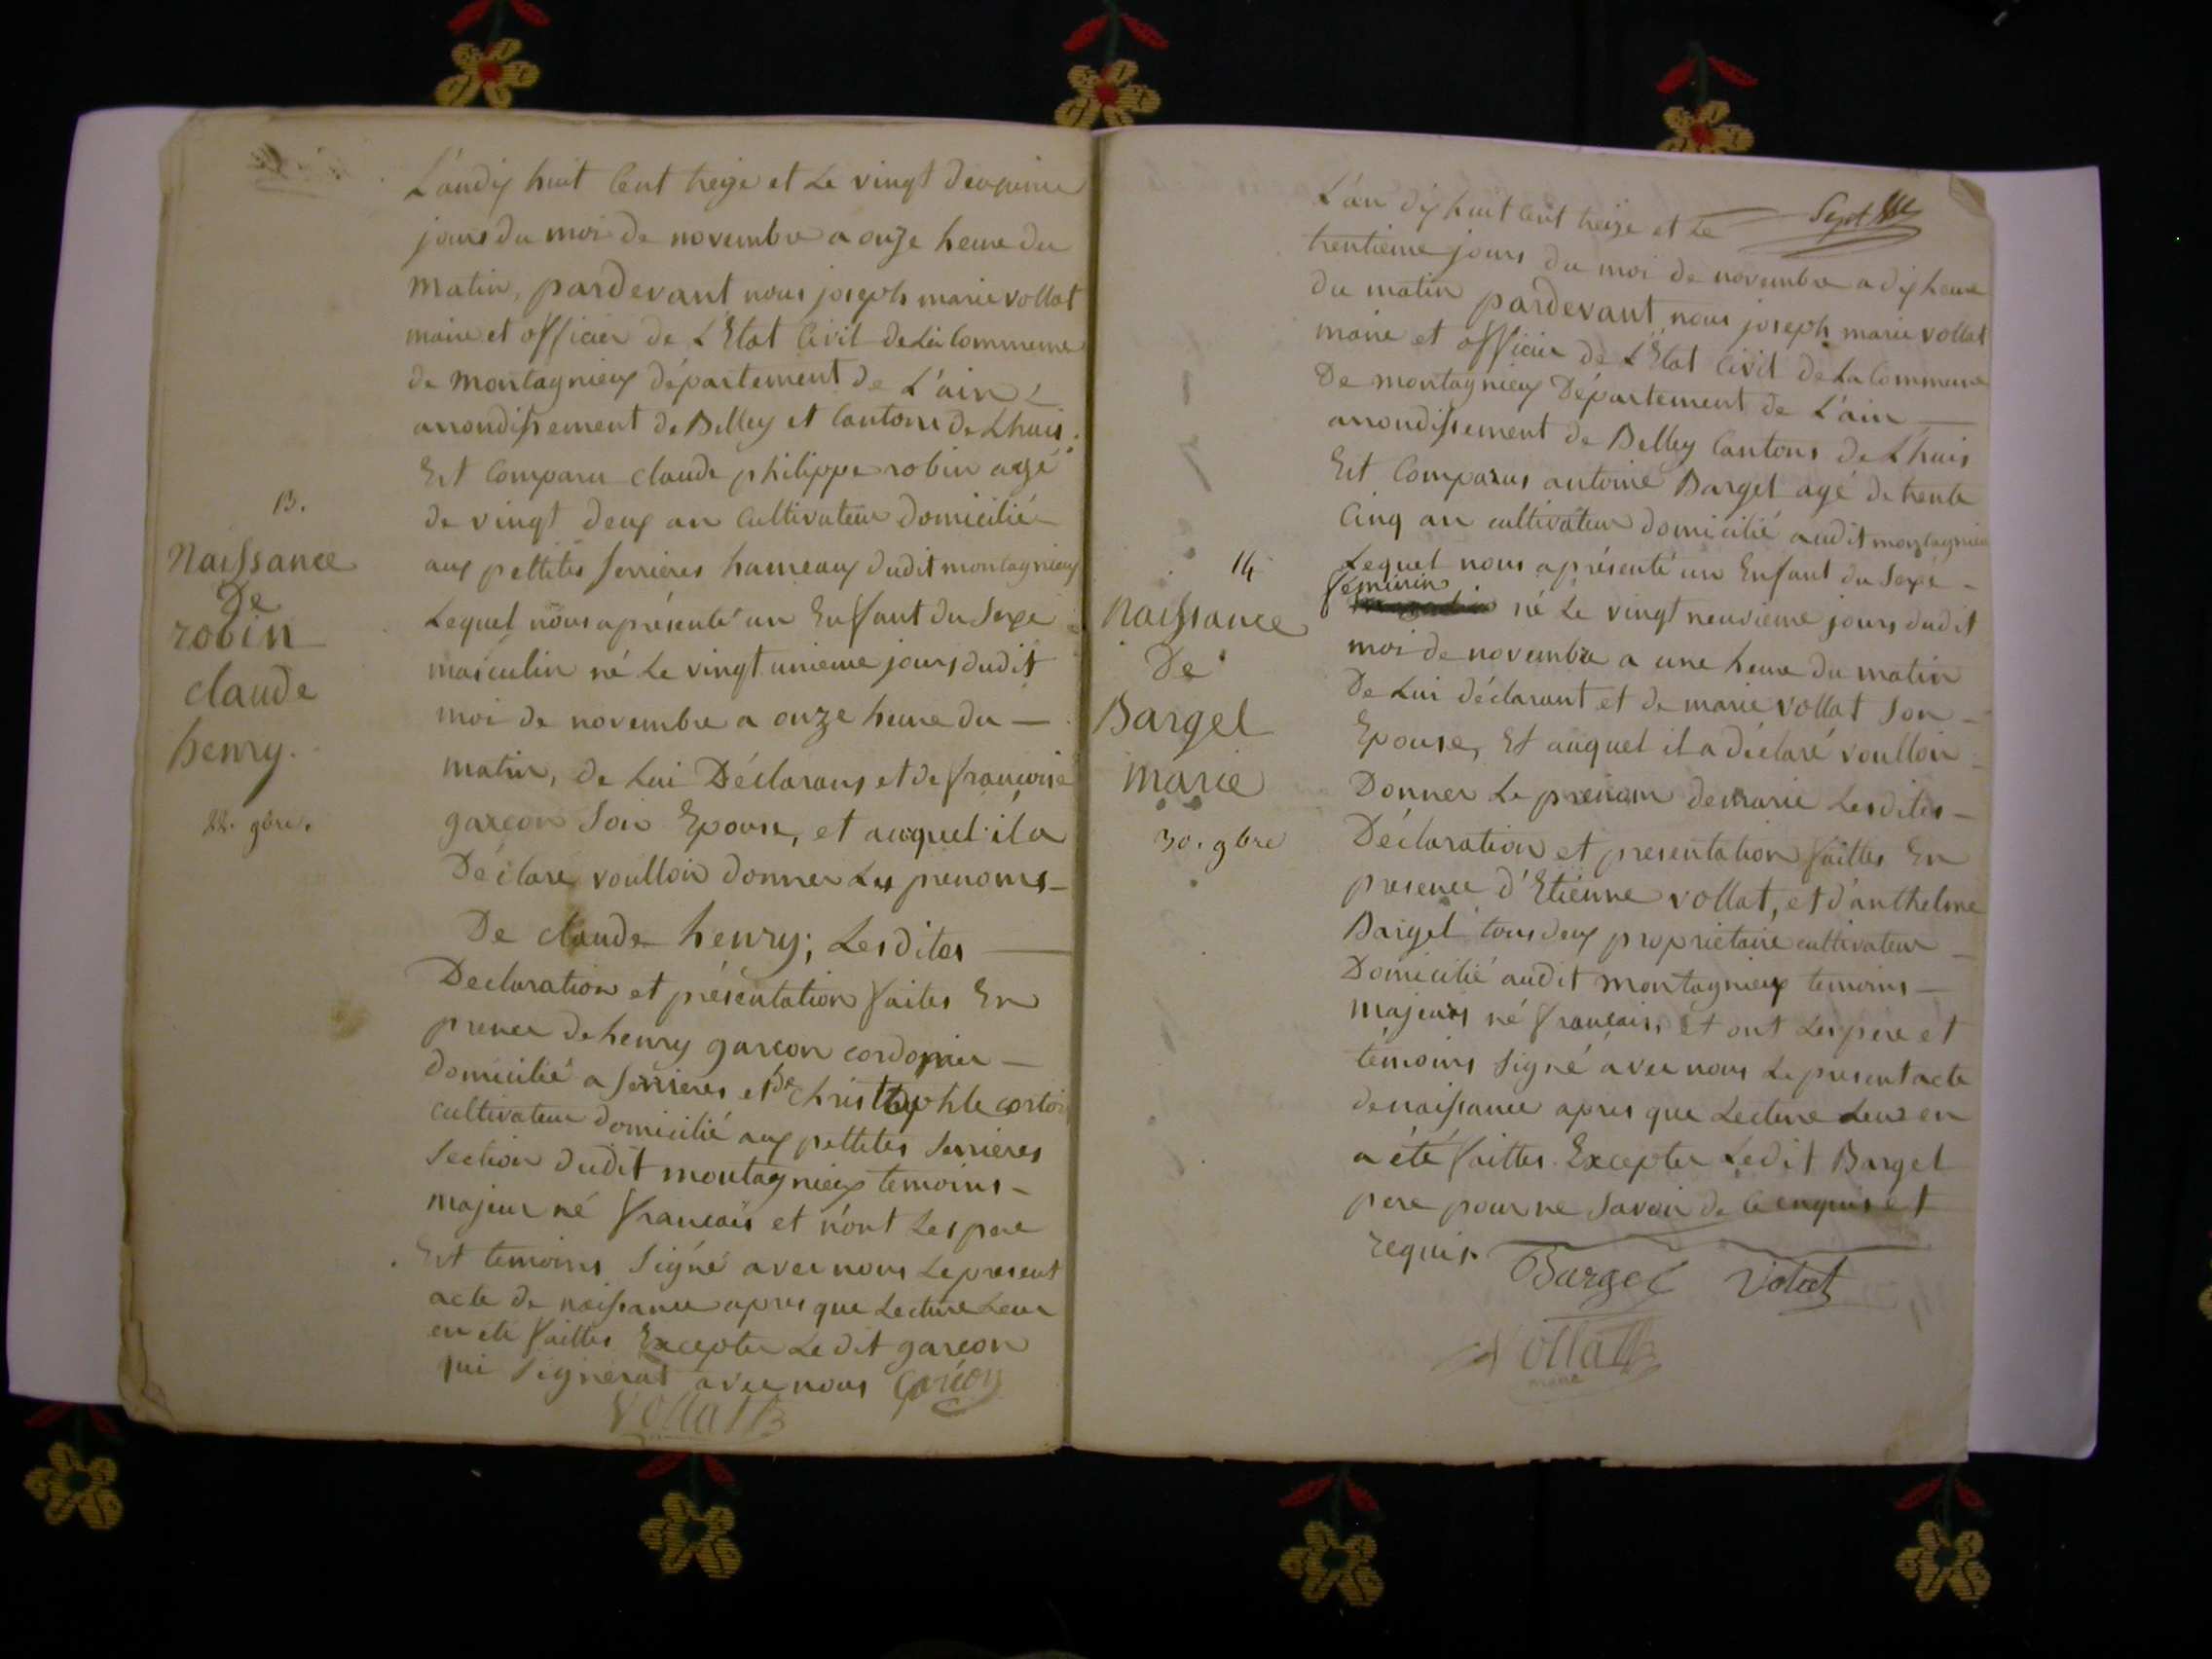 L'an dix huit Cent treize et Le vingt deuxieme
jours du moi de novembre a onze heure du
matin, pardevant nous joseph marie vollat
maire et officier de L'Etat Civil de La Commune
de montagnieux département de L'ain
arrondissement de Belley et Cantons de Lhuis.
Est Comparu claude philippe robin agé
de vingt deux an Cultivateur domicilié
aux pettites Serrieres hameaux dudit montagnieux
Lequel nous a présenté un Enfant du Sexe
masculin né Le vingt unieme jours dudit
moi de novembre a onze heure du —
matin, de Lui Déclarans et de francoise
garcon Son Epouse, et auquel il a
Déclare voulloir donner Les prenoms —
De claude henry; Lesdites —
Declaration et présentation faites En
presence de henry garcon cordonnier —
domicilié a Serrieres et de christophle cortois
cultivateur domicilié aux pettites Serrieres
Section dudit montagnieux temoins —
majeur né francais et n'ont Les pere
Et temoins Signé avec nous Le present
acte de naissance apres que Lecture Leur
en été faittes Excepter Le dit garcon
qui Signerat avec nous Garcon
Vollat
13.
Naissance
De
robin
claude
henry.
22. 9bre.
Sept
L'an dix huit Cent treize et Le
trentieme jours du moi de novembre a dix heure
du matin pardevant nous joseph marie vollat
maire et officier de L'Etat Civil de La Commune
De montagnieux Département de L'ain —
arrondissement de Belley Cantons de Lhuis
Est Comparus antoine Bargel agé de trente
Cinq an cultivateur domicilié audit montagnieux
Lequel nous a présenté un Enfant du Sexe —
féminin né Le vingt neuvieme jours dudit
moi de novembre a une heure du matin
De Lui déclarant et de marie vollat Son —
Epouse, Et auquel il a déclaré voulloir
Donner Le prenom de marie Lesdites —
Déclaration et presentation faittes En
presence d'Etienne vollat, et d'anthelme
Bargel tous deux proprietaire cultivateur —
Domicilié audit montagnieux temoins —
majeurs né francais, et ont Les pere et
témoins Signé avec nous Le present acte
de naissance apres que Lecture Leur en
a été faittes. Excepter Ledit Bargel
pere pour ne Savoir de Ce enquis et
requis.
Bargel Volat
Vollat
maire
14
Naissance
De
Bargel
marie
30. 9bre